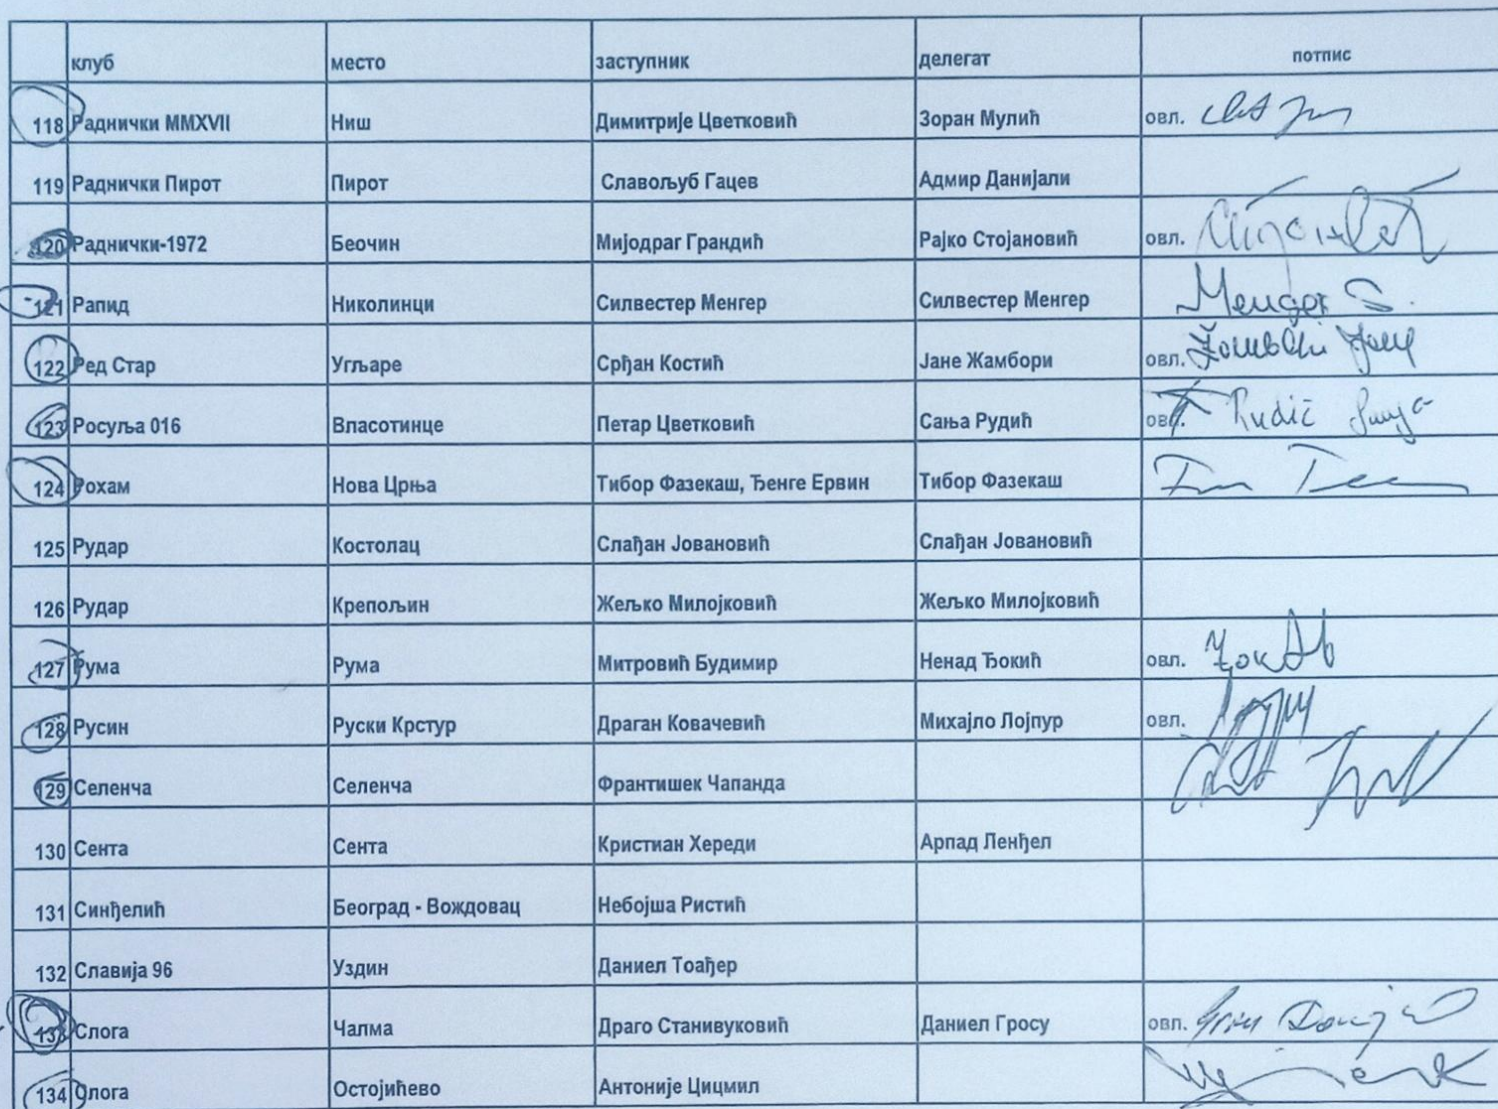 клуб место заступник делегат потпис
118 Раднички MMXVII Ниш Димитрије Цветковић Зоран Мулић овл.
119 Раднички Пирот Пирот Славољуб Гацев Адмир Данијали
120 Раднички-1972 Беочин Мијодраг Грандић Рајко Стојановић овл.
121 Рапид Николинци Силвестер Менгер Силвестер Менгер Менгер S.
122 Ред Стар Угљаре Срђан Костић Јане Жамбори овл.
123 Росуља 016 Власотинце Петар Цветковић Сања Рудић овл. Rudić
124 Рохам Нова Црња Тибор Фазекаш, Ђенге Ервин Тибор Фазекаш
125 Рудар Костолац Слађан Јовановић Слађан Јовановић
126 Рудар Крепољин Жељко Милојковић Жељко Милојковић
127 Рума Рума Митровић Будимир Ненад Ђокић овл.
128 Русин Руски Крстур Драган Ковачевић Михајло Лојпур овл.
129 Селенча Селенча Франтишек Чапанда
130 Сента Сента Кристиан Хереди Арпад Ленђел
131 Синђелић Београд - Вождовац Небојша Ристић
132 Славија 96 Уздин Даниел Тоађер
133 Слога Чалма Драго Станивуковић Даниел Гросу овл.
134 Слога Остојићево Антоније Цицмил